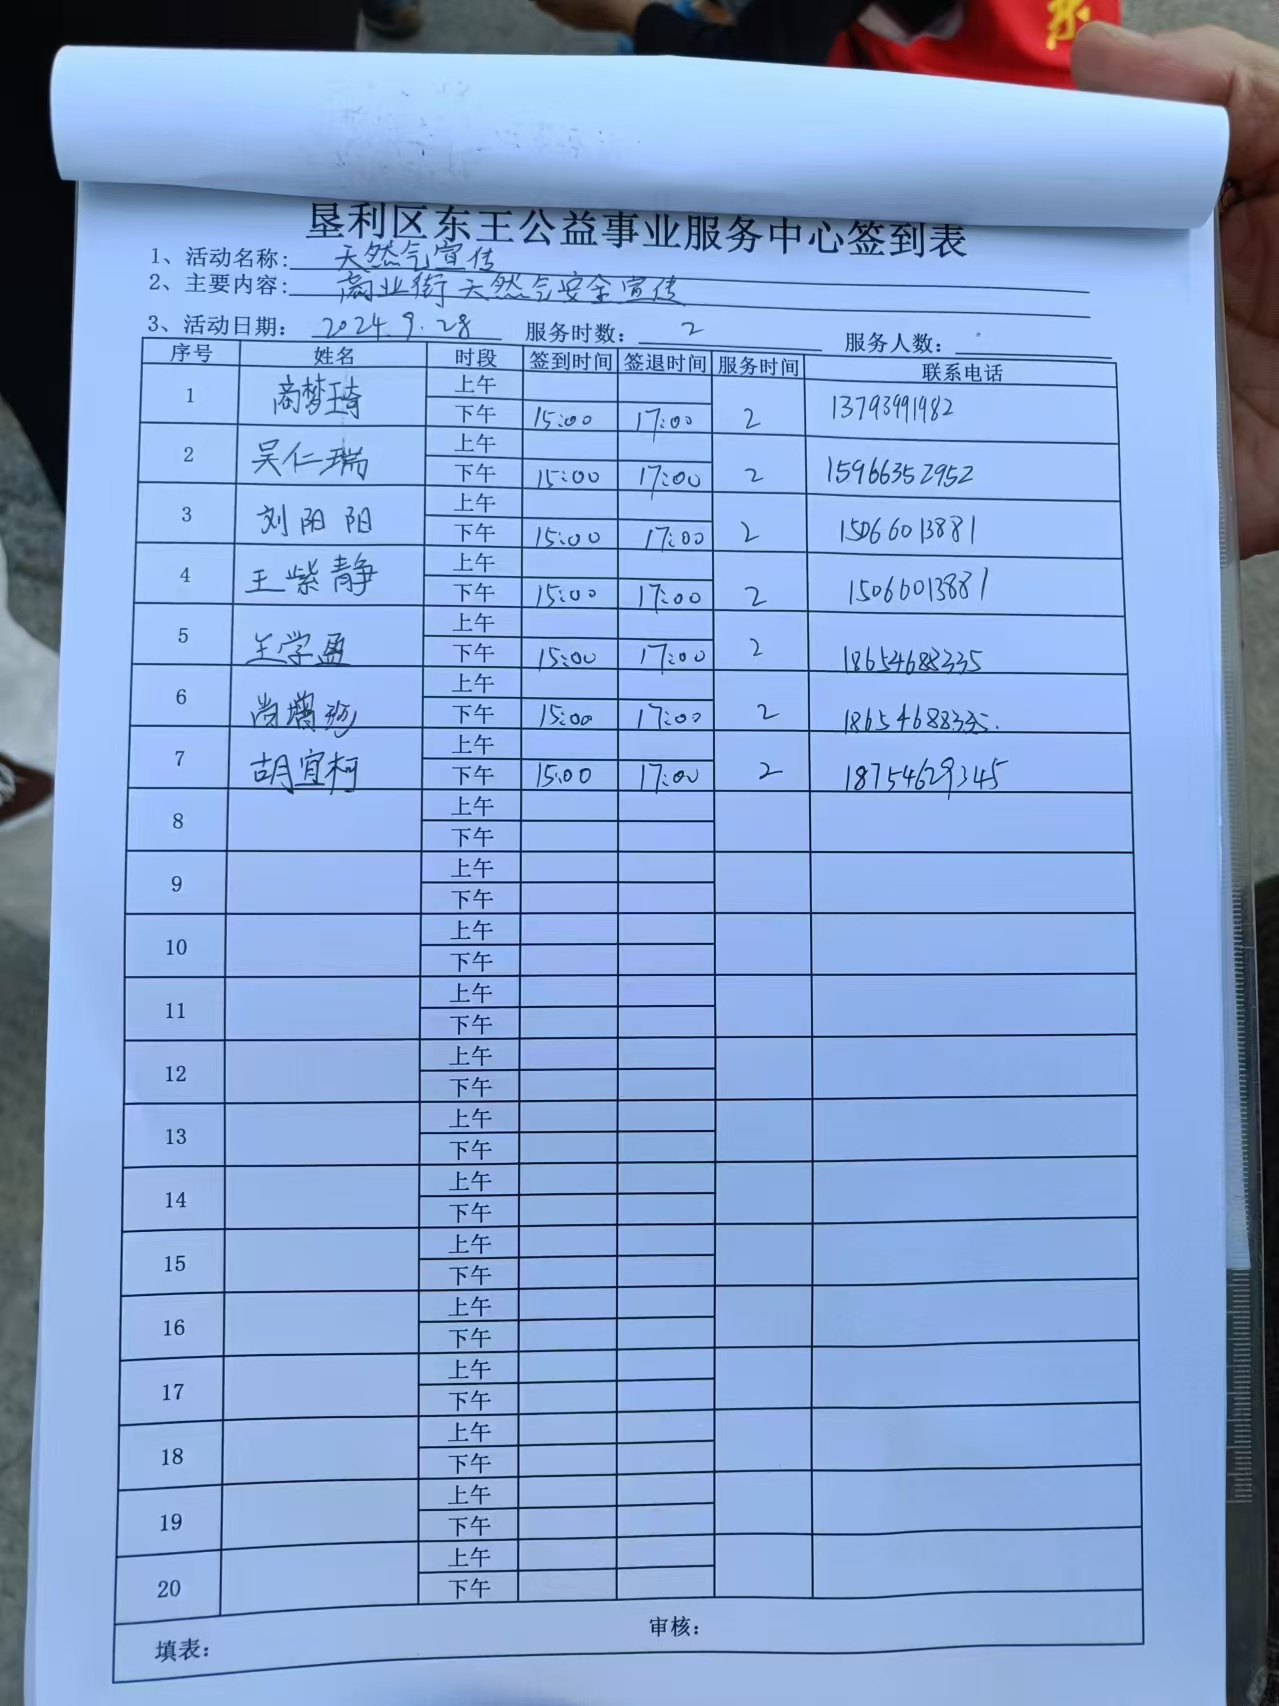 垦利区东王公益事业服务中心签到表
1、活动名称: 天然气宣传
2、主要内容: 商业街天然气安全宣传
3、活动日期: 2024.9.28 服务时数: 2 服务人数:
序号 姓名 时段 签到时间 签退时间 服务时间 联系电话
1 商梦琦 上午 13793991982
下午 15:00 17:00 2
2 吴仁瑞 上午 15966352952
下午 15:00 17:00 2
3 刘阳阳 上午 15066013881
下午 15:00 17:00 2
4 王紫静 上午 15066013881
下午 15:00 17:00 2
5 王学盈 上午 18654688335
下午 15:00 17:00 2
6 上午
下午 15:00 17:00 2
7 胡宜柯 上午 18754629345
下午 15:00 17:00 2
8 上午
下午
9 上午
下午
10 上午
下午
11 上午
下午
12 上午
下午
13 上午
下午
14 上午
下午
15 上午
下午
16 上午
下午
17 上午
下午
18 上午
下午
19 上午
下午
20 上午
下午
填表: 审核: